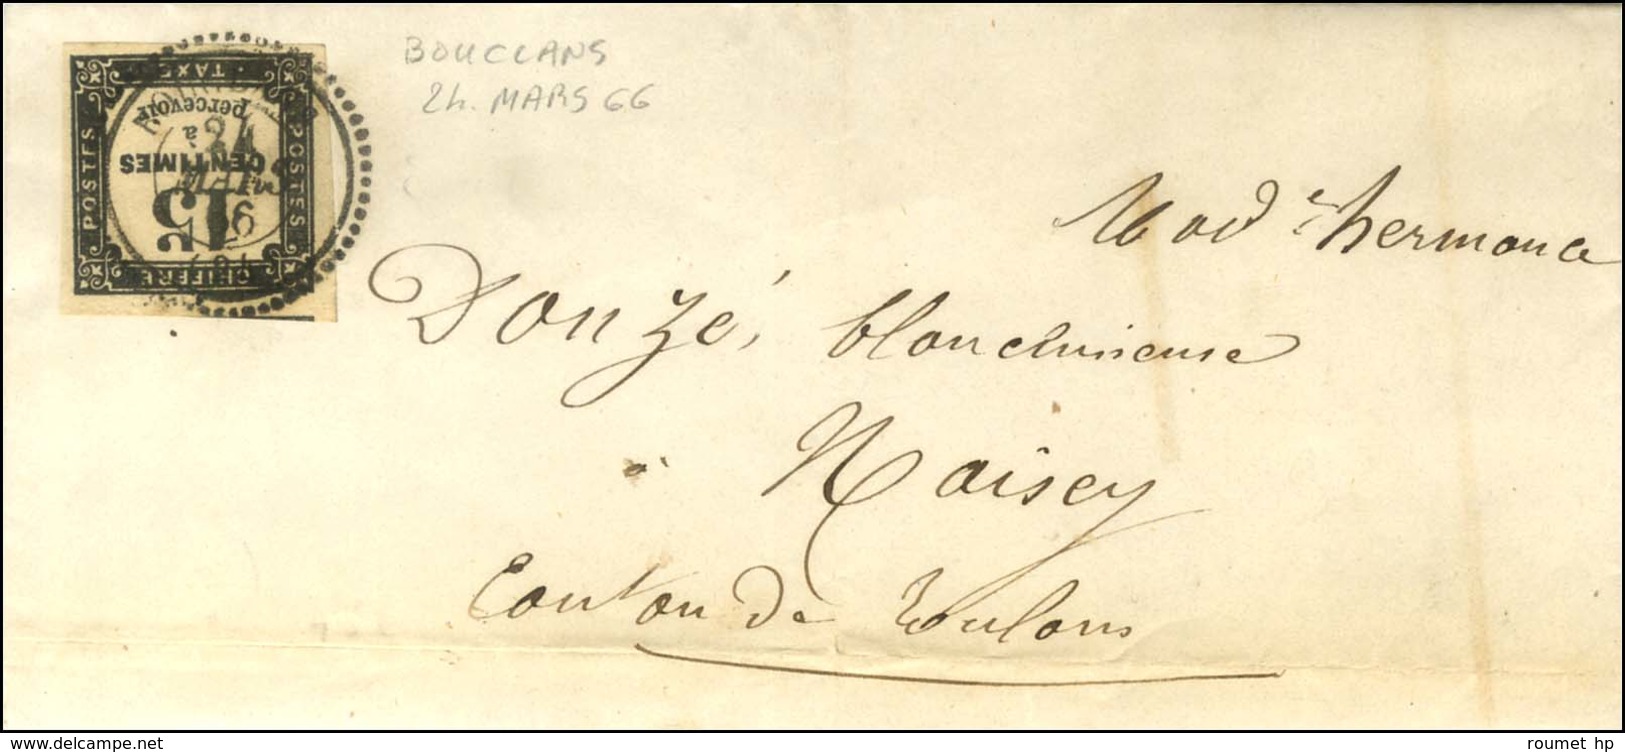 BOUCLANS
24. MARS 66
POSTES
CHIFFRE
POSTES
TAXE
15
CENTIMES
à
percevoir
24
MARS
66
Mad e hermance
Donzé, blanchisseuse
à Naisey
Canton de Roulans
www.delcampe.net
roumet hp